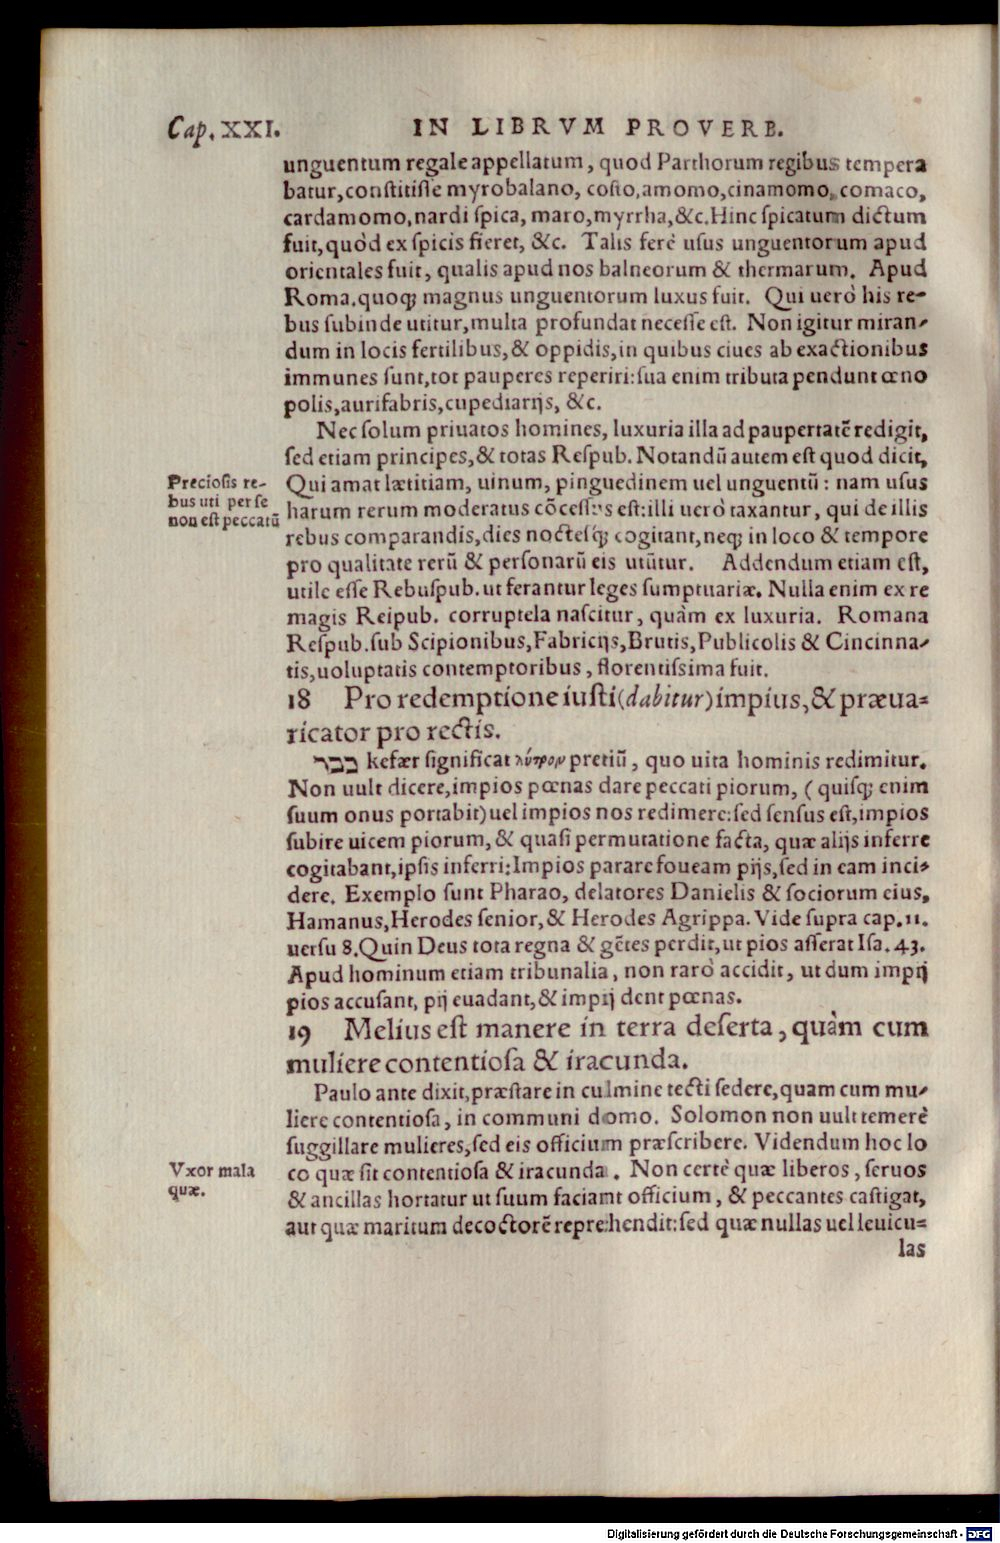 Cap. XXI. IN LIBRVM PROVERB.
unguentum regale appellatum, quod Parthorum regibus tempera
batur, constitisse myrobalano, costo, amomo, cinamomo, comaco,
cardamomo, nardi spica, maro, myrrha, &c. Hinc spicatum dictum
fuit, quòd ex spicis fieret, &c. Talis ferè usus unguentorum apud
orientales fuit, qualis apud nos balneorum & thermarum. Apud
Roma. quoq; magnus unguentorum luxus fuit. Qui uerò his re-
bus subinde utitur, multa profundat necesse est. Non igitur miran-
dum in locis fertilibus, & oppidis, in quibus ciues ab exactionibus
immunes sunt, tot pauperes reperiri: sua enim tributa pendunt œno
polis, aurifabris, cupediarijs, &c.
Nec solum priuatos homines, luxuria illa ad paupertatē redigit,
sed etiam principes, & totas Respub. Notandū autem est quod dicit,
Preciosis re-
bus uti per se
non est peccatū
Qui amat lætitiam, uinum, pinguedinem uel unguentū: nam usus
harum rerum moderatus cōcessus est: illi uerò taxantur, qui de illis
rebus comparandis, dies noctesq́; cogitant, neq; in loco & tempore
pro qualitate rerū & personarū eis utūtur. Addendum etiam est,
utile esse Rebuspub. ut ferantur leges sumptuariæ. Nulla enim ex re
magis Reipub. corruptela nascitur, quàm ex luxuria. Romana
Respub. sub Scipionibus, Fabricijs, Brutis, Publicolis & Cincinna-
tis, uoluptatis contemptoribus, florentissima fuit.
18 Pro redemptione iusti (dabitur) impius, & præua-
ricator pro rectis.
כבר kefær significat λύτρον pretiū, quo uita hominis redimitur.
Non uult dicere, impios pœnas dare peccati piorum, (quisq; enim
suum onus portabit) uel impios nos redimere: sed sensus est, impios
subire uicem piorum, & quasi permutatione facta, quæ alijs inferre
cogitabant, ipsis inferri: Impios parare foueam pijs, sed in eam inci-
dere. Exemplo sunt Pharao, delatores Danielis & sociorum eius,
Hamanus, Herodes senior, & Herodes Agrippa. Vide supra cap. 11.
uersu 8. Quin Deus tota regna & gētes perdit, ut pios asserat Isa. 43.
Apud hominum etiam tribunalia, non rarò accidit, ut dum impij
pios accusant, pij euadant, & impij dent pœnas.
19 Melius est manere in terra deserta, quàm cum
muliere contentiosa & iracunda.
Paulo ante dixit, præstare in culmine tecti sedere, quam cum mu-
liere contentiosa, in communi domo. Solomon non uult temerè
suggillare mulieres, sed eis officium præscribere. Videndum hoc lo
Vxor mala
quæ.
co quæ sit contentiosa & iracunda. Non certè quæ liberos, seruos
& ancillas hortatur ut suum faciant officium, & peccantes castigat,
aut quæ maritum decoctorē reprehendit: sed quæ nullas uel leuicu-
las
Digitalisierung gefördert durch die Deutsche Forschungsgemeinschaft - DFG